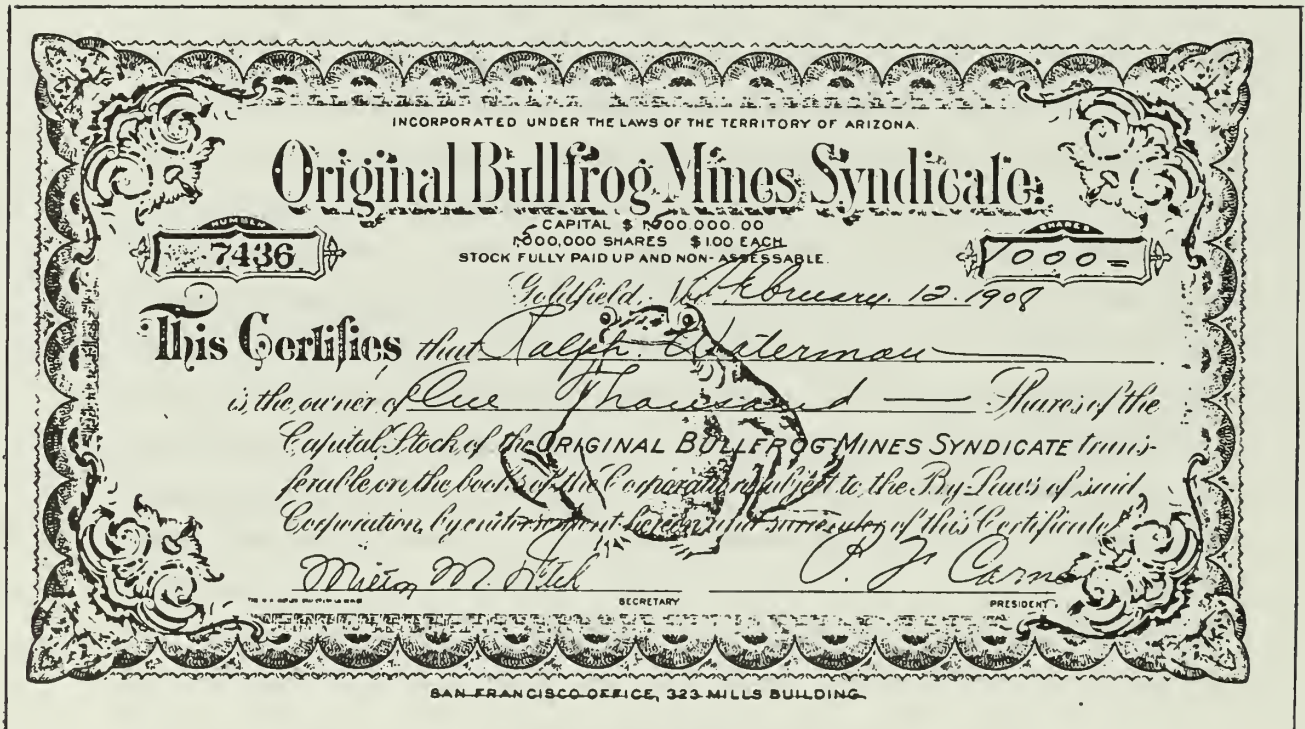 INCORPORATED UNDER THE LAWS OF THE TERRITORY OF ARIZONA.
Original Bullfrog Mines Syndicate.
CAPITAL $ 1,000.000.00
1,000,000 SHARES $1.00 EACH
STOCK FULLY PAID UP AND NON-ASSESSABLE.
7436
SHARES
1000=
Goldfield, February. 12. 1908
This Certifies that Ralph. Waterman
is the owner of One Thousand Shares of the
Capital Stock of the ORIGINAL BULLFROG MINES SYNDICATE trans-
ferable on the books of the Corporation subject to the By-Laws of said
Corporation, by endorsement hereon upon surrender of this Certificate
Milton M. Detch
P. J. Carn
SECRETARY
PRESIDENT
SAN FRANCISCO OFFICE, 323 MILLS BUILDING.